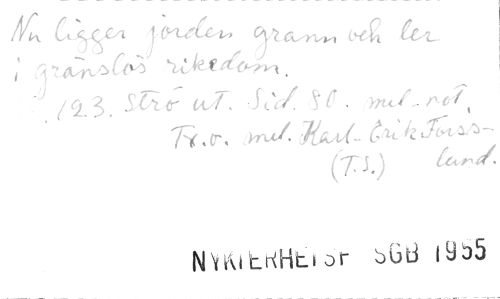 Nu ligger jorden grann och ler
i gränslös rikedom.
123. Strö ut. Sid. 80. mel.-not.
Tx.o. mel. Karl-Erik Forss-
(T.S.) lund.
NYKTERHETSF SGB 1955